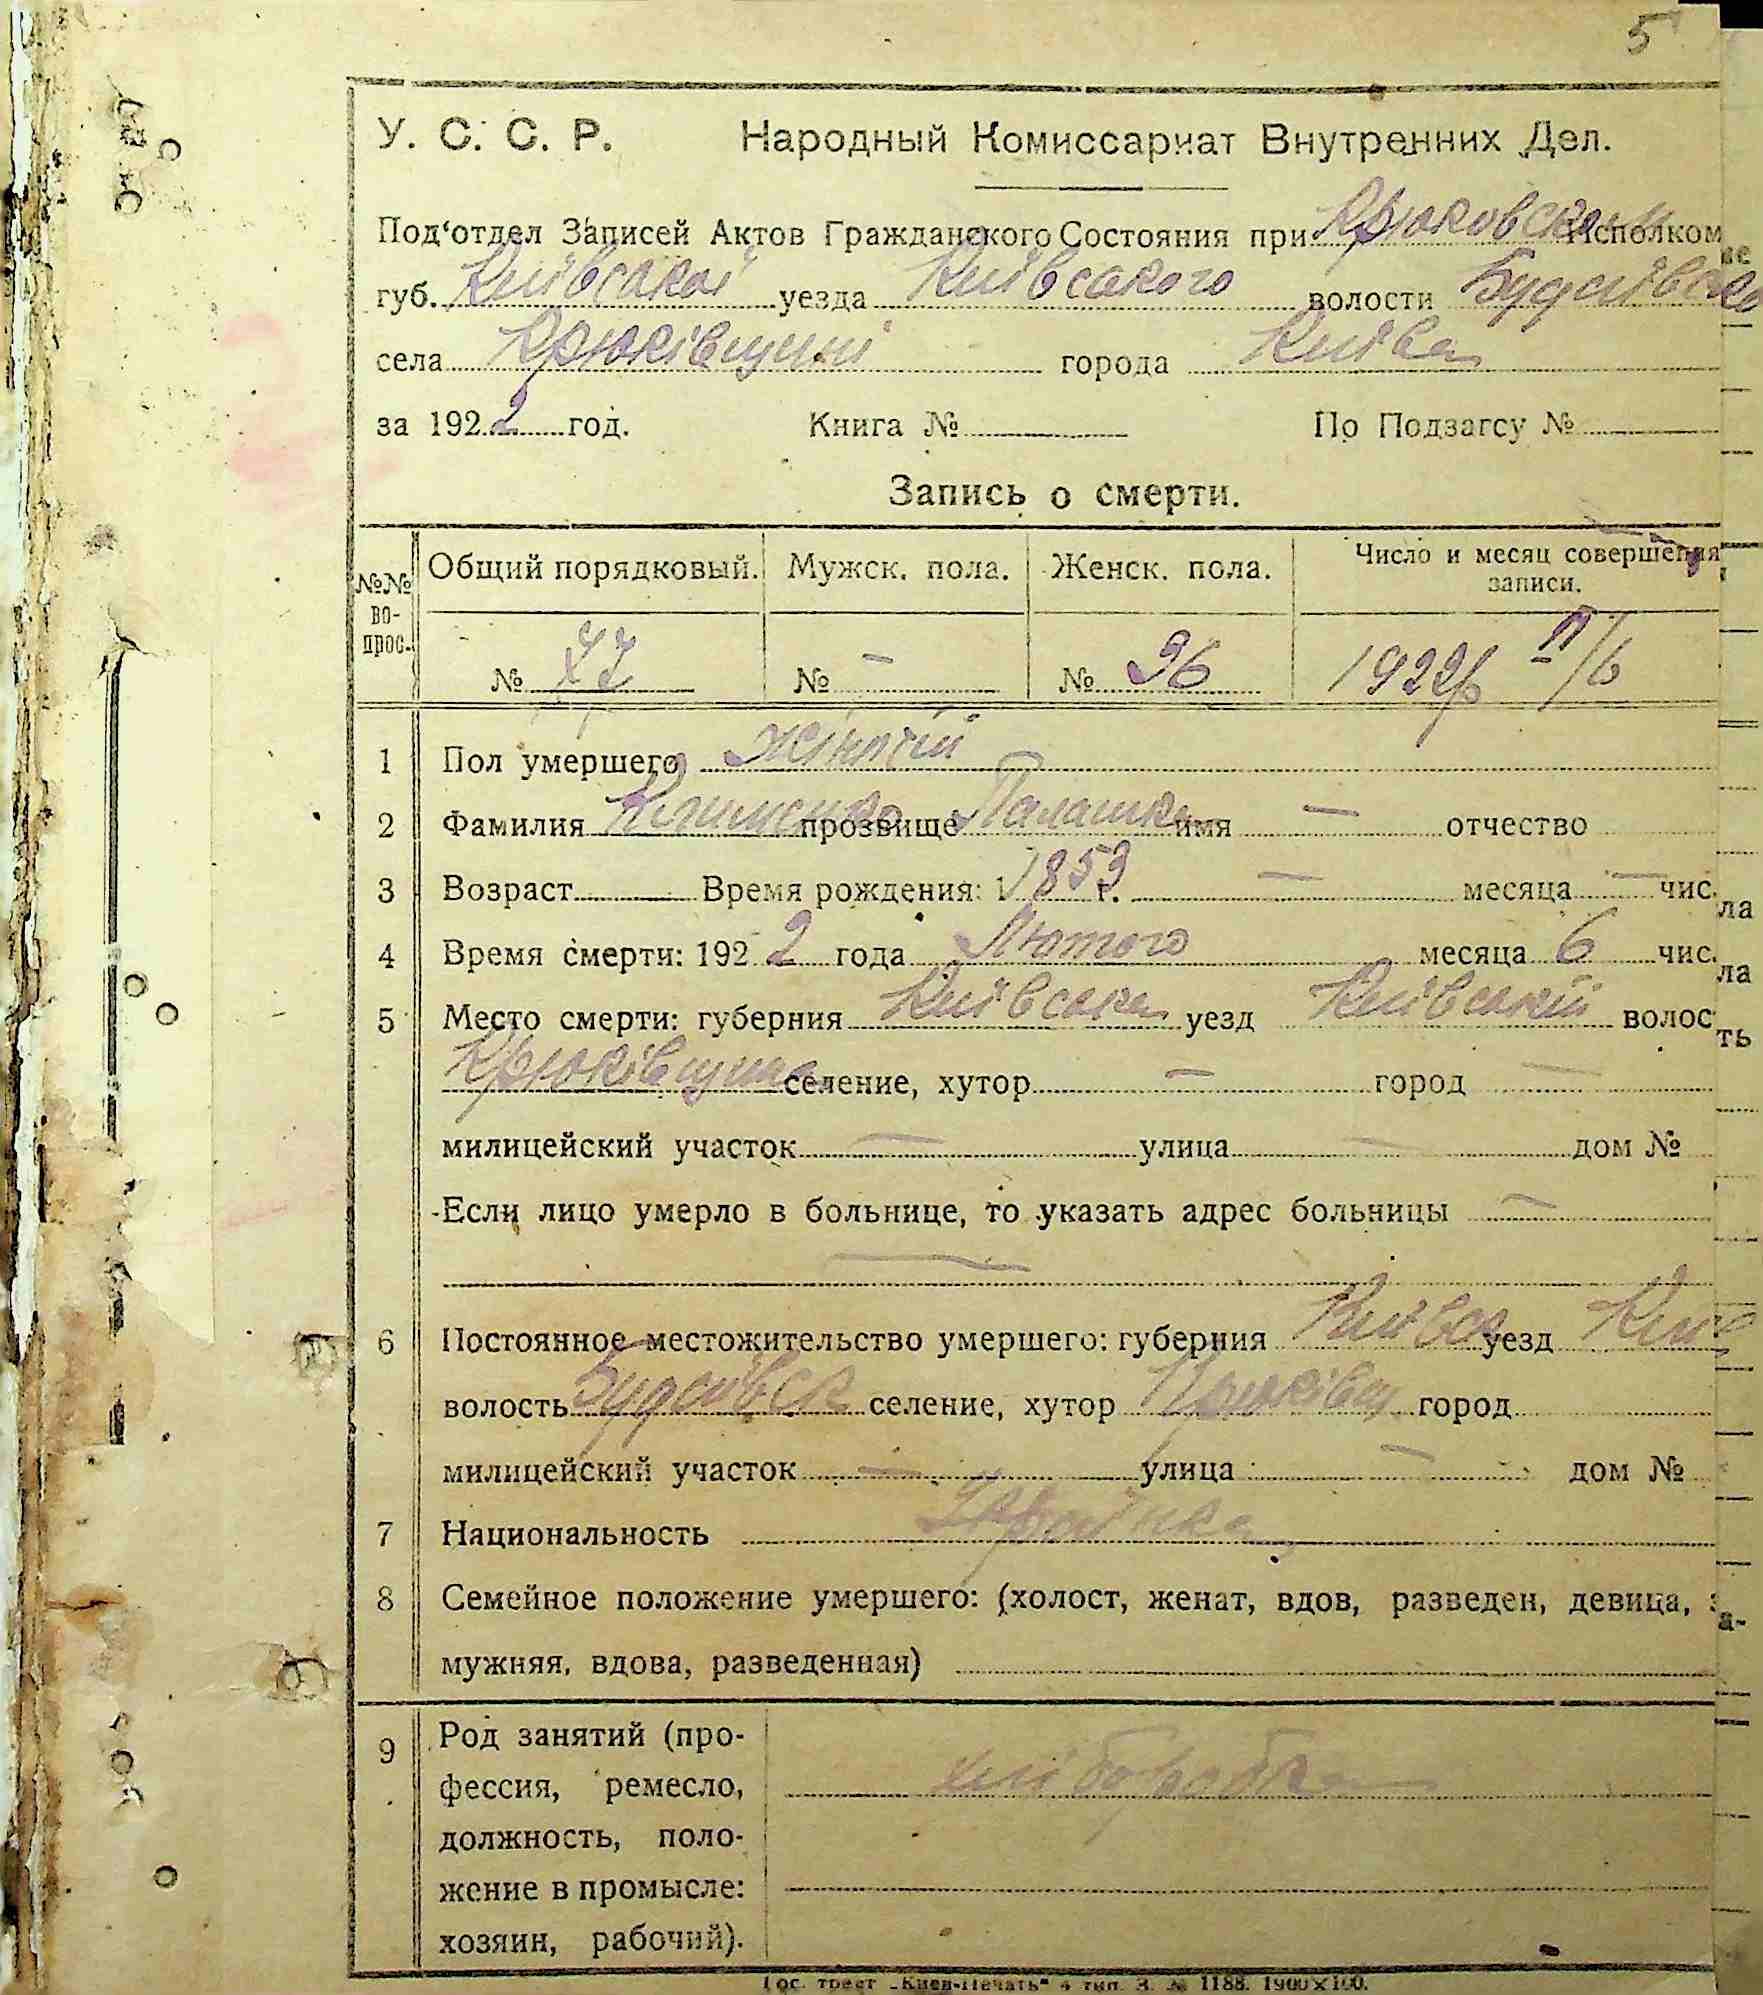 5
У. С. С. Р. Народный Комиссариат Внутренних Дел.
Под‘отдел Записей Актов Гражданского Состояния при Крюковском Исполком
губ. Київської уезда Київського волости
села Крюківщині города Київа
за 1922 год. Книга № По Подзагсу №
Запись о смерти.
№№ во- прос. Общий порядковый. Мужск. пола. Женск. пола. Число и месяц совершения записи.
№ № — № 36 1922р
1 Пол умершего жіночій
2 Фамилия Клименко прозвище Палашка имя — отчество
3 Возраст Время рождения: 1853 г. — месяца — чис.
4 Время смерти: 1922 года Лютого месяца 6 чис.
5 Место смерти: губерния Київська уезд Київський волос
Крюківщина селение, хутор — город —
милицейский участок — улица — дом №
Если лицо умерло в больнице, то указать адрес больницы —
—
6 Постоянное местожительство умершего: губерния Київськ уезд Київ
волость селение, хутор Крюківщ город
милицейский участок — улица — дом №
7 Национальность Українка
8 Семейное положение умершего: (холост, женат, вдов, разведен, девица,
мужняя, вдова, разведенная)
9 Род занятий (про-
фессия, ремесло, хліборобка
должность, поло-
жение в промысле:
хозяин, рабочий).
Гос. трест „Киев-Печать“ 4 тип. З. № 1188. 1900×100.